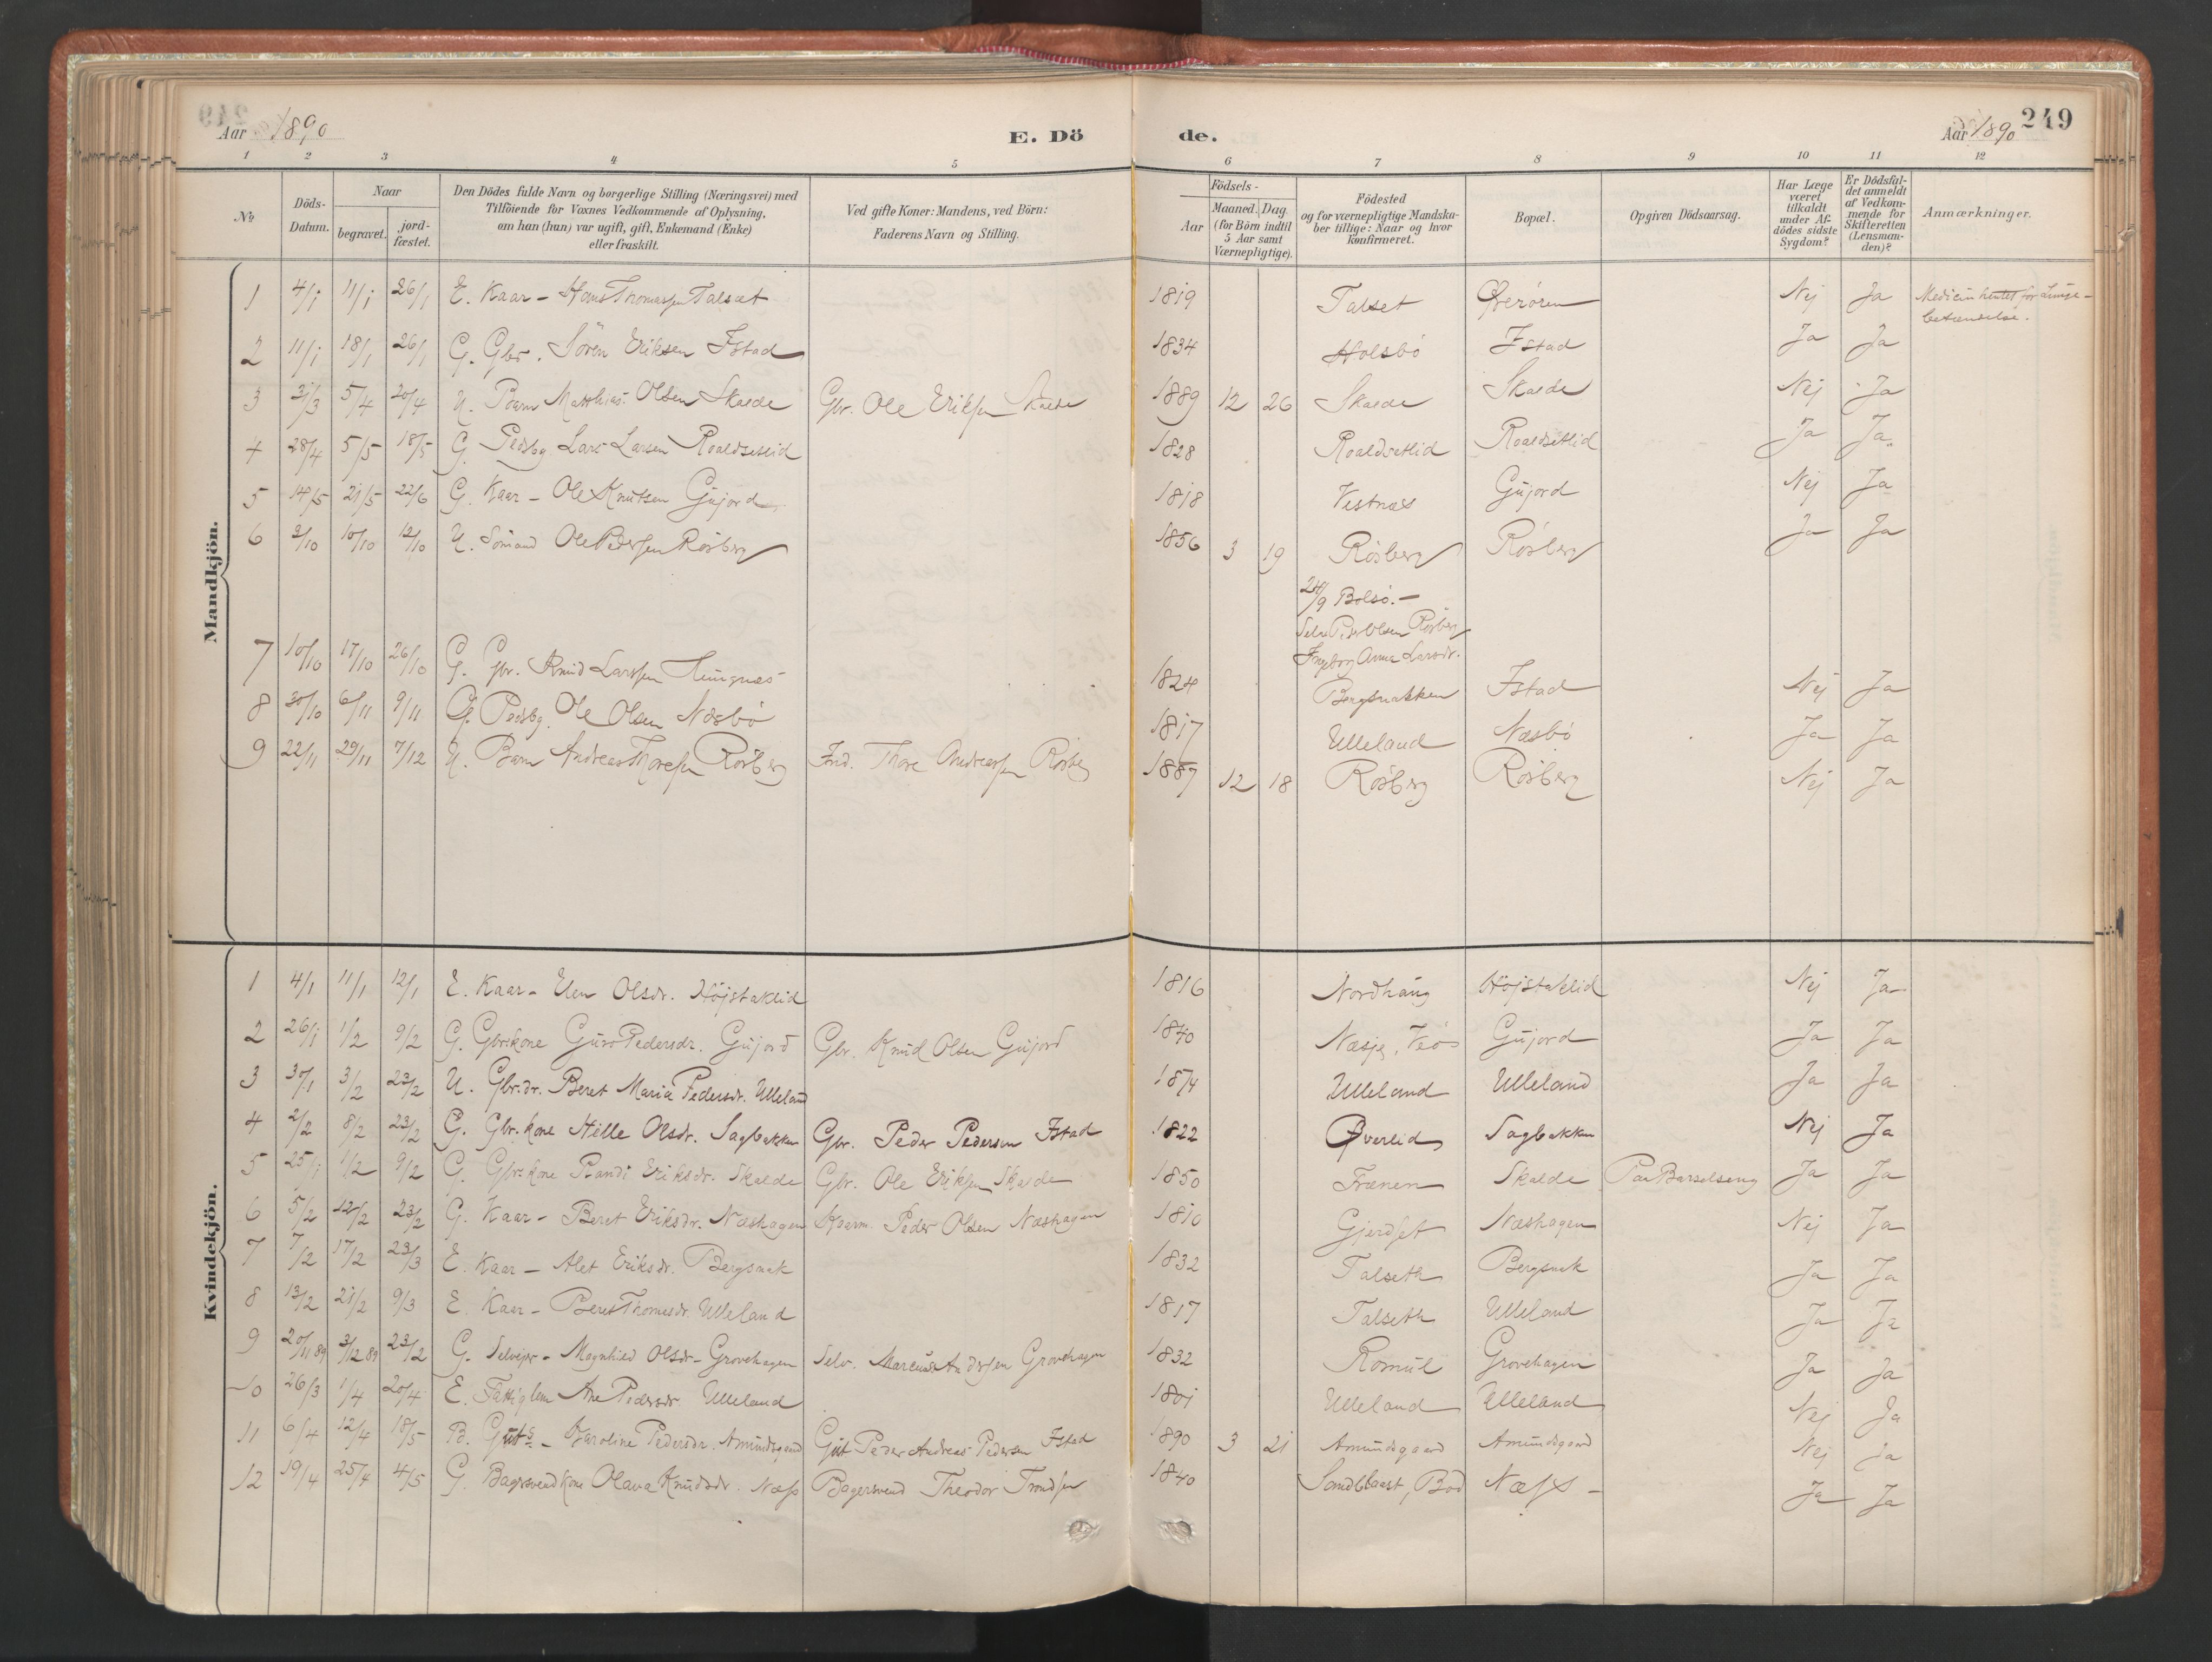 Aar 1890 E. Dö de. Aar 1890 249
1 2 3 4 5 6 7 8 9 10 11 12
No Döds-Datum. Naar begravet. jordfæstet. Den Dödes fulde Navn og borgerlige Stilling (Næringsvei) med Tilföiende for Voxnes Vedkommende af Oplysning, om han (hun) var ugift, gift, Enkemand (Enke) eller fraskilt. Ved gifte Koner: Mandens, ved Börn: Faderens Navn og Stilling. Födsels- Aar Maaned. Dag. (for Börn indtil 5 Aar samt Værnepligtige). Födested og for værnepligtige Mandskaber tillige: Naar og hvor konfirmeret. Bopæl. Opgiven Dödsaarsag. Har Læge været tilkaldt under Afdödes sidste Sygdom? Er Dödsfaldet anmeldt af Vedkommende for Skifteretten (Lensmanden)? Anmærkninger.
Mandkjön.
1 4/1 11/1 26/1 E. Kaar - Hans Thomassen Talsæt 1819 Talset Øverøren Nej Ja Medicin hentet for Lunge-
betændelse.
2 11/1 18/1 26/1 G. Gbr. Sören Eriksen Istad 1834 Holsbö Istad Ja Ja
3 31/3 5/4 20/4 U. Barn Matthias Olsen Skalde Gbr. Ole Eriksen Skalde 1889 12 26 Skalde Skalde Nej Ja
4 28/4 5/5 18/5 G. Pladsbg Lars Larsen Roaldsetlid 1828 Roaldsetlid Roaldsetlid Ja Ja
5 14/5 21/5 22/6 G. Kaar - Ole Knutsen Gujord 1818 Vestnæs Gujord Nej Ja
6 2/10 10/10 12/10 U. Sömand Ole Pedersen Rösberg 1856 3 19 Rösberg Rösberg Ja Ja
24/9 Bolsö. -
Selv. Peder Olsen Rösberg
Ingborg Anna Larsdr.
7 10/10 17/10 26/10 G. Gbr. Knud Larssen 1824 Bergsnakken Istad Nej Ja
8 30/10 6/11 9/11 G. Pladsbg. Ole Olsen Næsbö 1817 Ulleland Næsbö Ja Ja
9 22/11 29/11 7/12 U. Barn Andreas Thoresen Rösberg Ind. Thore Andreassen Rösberg 1887 12 18 Rösberg Rösberg Nej Ja
Kvindekjön.
1 4/1 11/1 12/1 E. Kaar - Elen Olsdr. Höjstaklid 1816 Nordhaug Höjstaklid Nej Ja
2 26/1 1/2 9/2 G. Gbrkone Guro Pedersdr. Gujord Gbr. Knud Olsen Gujord 1840 Næsje, Veö Gujord Ja Ja
3 30/1 3/2 23/2 U. Gbr.dr. Beret Maria Pedersdr. Ulleland 1874 Ulleland Ulleland Ja Ja
4 2/2 8/2 23/2 G. Gbr.kone Hille Olsdr. Sagbakken Gbr. Peder Pedersen Istad 1822 Øverlid Sagbakken Nej Ja
5 25/1 1/2 9/2 G. Gbr.kone Randi Eriksdr. Skalde Gbr. Ole Eriksen Skalde 1850 Frænen Skalde Paa Barselseng Ja Ja
6 5/2 12/2 23/2 G. Kaar - Beret Eriksdr. Næshagen Kaarm. Peder Olsen Næshagen 1810 Gjerdset Næshagen Nej Ja
7 7/2 17/2 23/3 E. Kaar - Alet Eriksdr. Bergsnak 1832 Talseth Bergsnak Ja Ja
8 13/2 21/2 9/3 E. Kaar - Beret Thomasdr. Ulleland 1817 Talseth Ulleland Ja Ja
9 20/11 89 3/12 89 23/2 G. Selvejer - Magnhild Olsdr - Grovehagen Selv. Marcus Andersen Grovehagen 1832 Romül Grovehagen Ja Ja
10 26/3 1/4 20/4 E. Fattiglem Ane Pedersdr. Ulleland 1801 Ulleland Ulleland Nej Ja
11 6/4 12/4 18/5 B. Guts - Karoline Pedersdr. Amundsgaard Gut Peder Andreas Pedersen Istad 1890 3 21 Amundsgaard Amundsgaard Nej Ja
12 19/4 25/4 4/5 G. Bagersvendkone Olava Knudsdr. Næss Bagersvend Theodor Trondsen 1840 Sandblaast, Bod Næss - Ja Ja